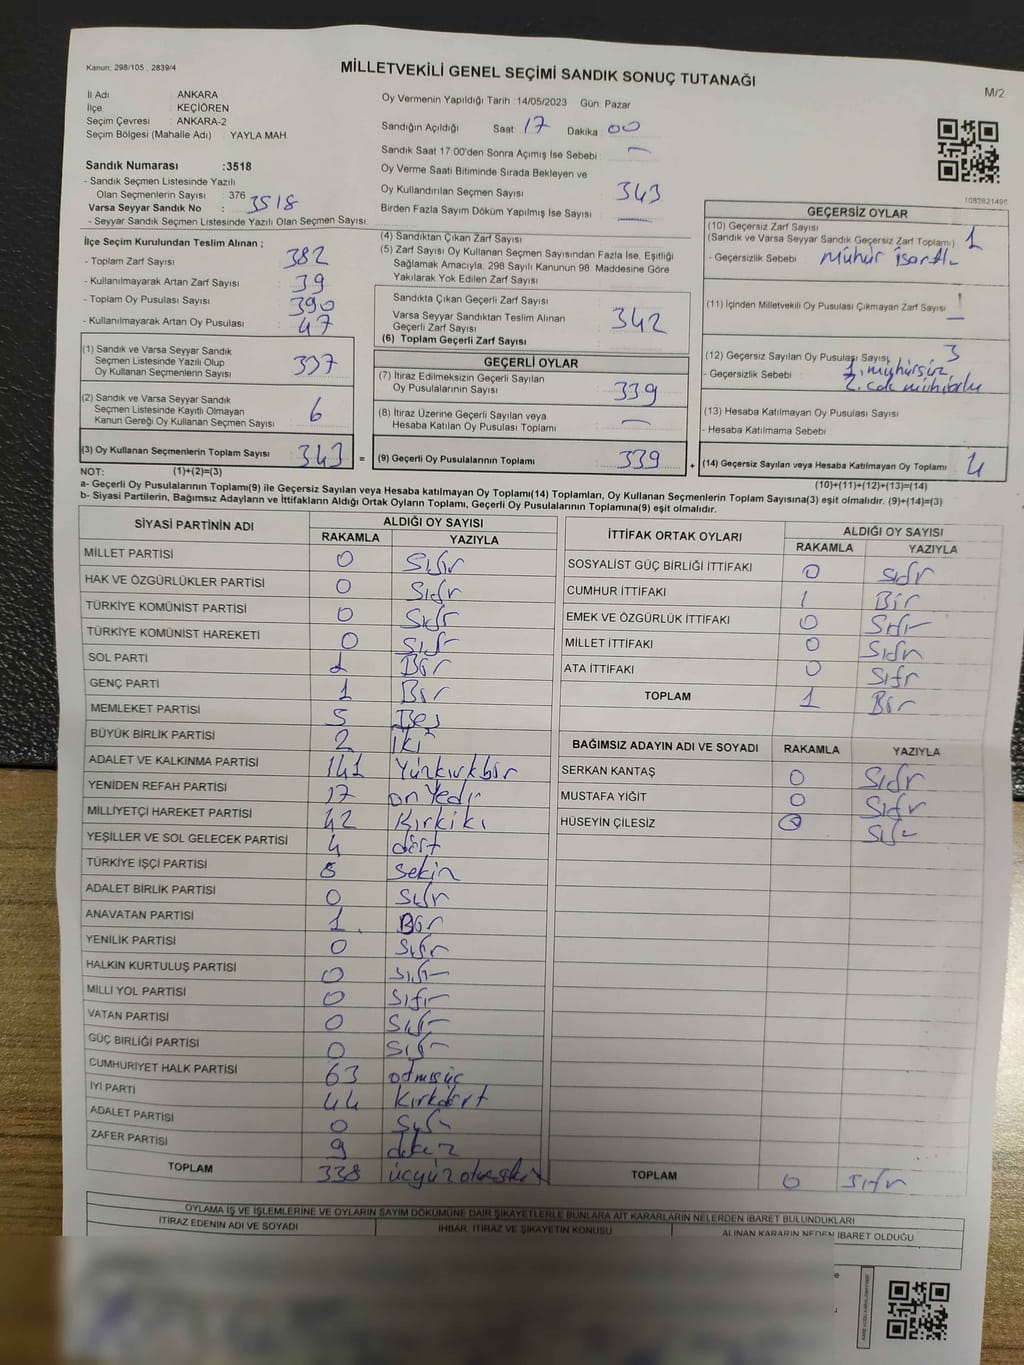 Kanun: 298/105 , 2839/4
MİLLETVEKİLİ GENEL SEÇİMİ SANDIK SONUÇ TUTANAĞI
M/2
İl Adı : ANKARA
İlçe : KEÇİÖREN
Seçim Çevresi : ANKARA-2
Seçim Bölgesi (Mahalle Adı) : YAYLA MAH.
Sandık Numarası :3518
- Sandık Seçmen Listesinde Yazılı
Olan Seçmenlerin Sayısı : 376
Varsa Seyyar Sandık No : 3518
- Seyyar Sandık Seçmen Listesinde Yazılı Olan Seçmen Sayısı:
Oy Vermenin Yapıldığı Tarih :14/05/2023 Gün: Pazar
Sandığın Açıldığı Saat: 17 Dakika 00
Sandık Saat 17:00'den Sonra Açımış İse Sebebi : —
Oy Verme Saati Bitiminde Sırada Bekleyen ve
Oy Kullandırılan Seçmen Sayısı : 343
Birden Fazla Sayım Döküm Yapılmış İse Sayısı : —
1083821496
İlçe Seçim Kurulundan Teslim Alınan ;
- Toplam Zarf Sayısı : 382
- Kullanılmayarak Artan Zarf Sayısı : 39
- Toplam Oy Pusulası Sayısı : 390
- Kullanılmayarak Artan Oy Pusulası : 47
(1) Sandık ve Varsa Seyyar Sandık
Seçmen Listesinde Yazılı Olup
Oy Kullanan Seçmenlerin Sayısı : 337
(2) Sandık ve Varsa Seyyar Sandık
Seçmen Listesinde Kayıtlı Olmayan
Kanun Gereği Oy Kullanan Seçmen Sayısı : 6
(3) Oy Kullanan Seçmenlerin Toplam Sayısı : 343 =
(4) Sandıktan Çıkan Zarf Sayısı :
(5) Zarf Sayısı Oy Kullanan Seçmen Sayısından Fazla İse, Eşitliği
Sağlamak Amacıyla, 298 Sayılı Kanunun 98. Maddesine Göre
Yakılarak Yok Edilen Zarf Sayısı :
Sandıkta Çıkan Geçerli Zarf Sayısı :
Varsa Seyyar Sandıktan Teslim Alınan
Geçerli Zarf Sayısı : 342
(6) Toplam Geçerli Zarf Sayısı :
GEÇERLİ OYLAR
(7) İtiraz Edilmeksizin Geçerli Sayılan
Oy Pusulalarının Sayısı : 339
(8) İtiraz Üzerine Geçerli Sayılan veya
Hesaba Katılan Oy Pusulası Toplamı : —
(9) Geçerli Oy Pusulalarının Toplamı : 339 +
GEÇERSİZ OYLAR
(10) Geçersiz Zarf Sayısı
(Sandık ve Varsa Seyyar Sandık Geçersiz Zarf Toplamı) : 1
- Geçersizlik Sebebi : Mühür
(11) İçinden Milletvekili Oy Pusulası Çıkmayan Zarf Sayısı :
(12) Geçersiz Sayılan Oy Pusulası Sayısı : 3
- Geçersizlik Sebebi : 1. mühürsüz
2. çok mühürlü
(13) Hesaba Katılmayan Oy Pusulası Sayısı :
- Hesaba Katılmama Sebebi :
(14) Geçersiz Sayılan veya Hesaba Katılmayan Oy Toplamı : 4
NOT: (1)+(2)=(3)
(10)+(11)+(12)+(13)=(14)
a- Geçerli Oy Pusulalarının Toplamı(9) ile Geçersiz Sayılan veya Hesaba katılmayan Oy Toplamı(14) Toplamları, Oy Kullanan Seçmenlerin Toplam Sayısına(3) eşit olmalıdır. (9)+(14)=(3)
b- Siyasi Partilerin, Bağımsız Adayların ve İttifakların Aldığı Ortak Oyların Toplamı, Geçerli Oy Pusulalarının Toplamına(9) eşit olmalıdır.
SİYASİ PARTİNİN ADI ALDIĞI OY SAYISI
RAKAMLA YAZIYLA
MİLLET PARTİSİ 0 Sıfır
HAK VE ÖZGÜRLÜKLER PARTİSİ 0 Sıfır
TÜRKİYE KOMÜNİST PARTİSİ 0 Sıfır
TÜRKİYE KOMÜNİST HAREKETİ 0 Sıfır
SOL PARTİ 1 Bir
GENÇ PARTİ 1 Bir
MEMLEKET PARTİSİ 5 Beş
BÜYÜK BİRLİK PARTİSİ 2 İki
ADALET VE KALKINMA PARTİSİ 141 Yüzkırkbir
YENİDEN REFAH PARTİSİ 17 onYedi
MİLLİYETÇİ HAREKET PARTİSİ 42 Kırkiki
YEŞİLLER VE SOL GELECEK PARTİSİ 4 dört
TÜRKİYE İŞÇİ PARTİSİ 8 Sekiz
ADALET BİRLİK PARTİSİ 0 Sıfır
ANAVATAN PARTİSİ 1 Bir
YENİLİK PARTİSİ 0 Sıfır
HALKIN KURTULUŞ PARTİSİ 0 Sıfır
MİLLİ YOL PARTİSİ 0 Sıfır
VATAN PARTİSİ 0 Sıfır
GÜÇ BİRLİĞİ PARTİSİ 0 Sıfır
CUMHURİYET HALK PARTİSİ 63 atmışüç
İYİ PARTİ 44 Kırkdört
ADALET PARTİSİ 0 Sıfır
ZAFER PARTİSİ 9 dokuz
TOPLAM 338 üçyüzotuzsekiz
İTTİFAK ORTAK OYLARI ALDIĞI OY SAYISI
RAKAMLA YAZIYLA
SOSYALİST GÜÇ BİRLİĞİ İTTİFAKI 0 Sıfır
CUMHUR İTTİFAKI 1 Bir
EMEK VE ÖZGÜRLÜK İTTİFAKI 0 Sıfır
MİLLET İTTİFAKI 0 Sıfır
ATA İTTİFAKI 0 Sıfır
TOPLAM 1 Bir
BAĞIMSIZ ADAYIN ADI VE SOYADI RAKAMLA YAZIYLA
SERKAN KANTAŞ 0 Sıfır
MUSTAFA YİĞİT 0 Sıfır
HÜSEYİN ÇİLESİZ 0 Sıfır
TOPLAM 0 Sıfır
OYLAMA İŞ VE İŞLEMLERİNE VE OYLARIN SAYIM DÖKÜMÜNE DAİR ŞİKAYETLERLE BUNLARA AİT KARARLARIN NELERDEN İBARET BULUNDUKLARI
İTİRAZ EDENİN ADI VE SOYADI İHBAR, İTİRAZ VE ŞİKAYETİN KONUSU ALINAN KARARIN NEDEN İBARET OLDUĞU